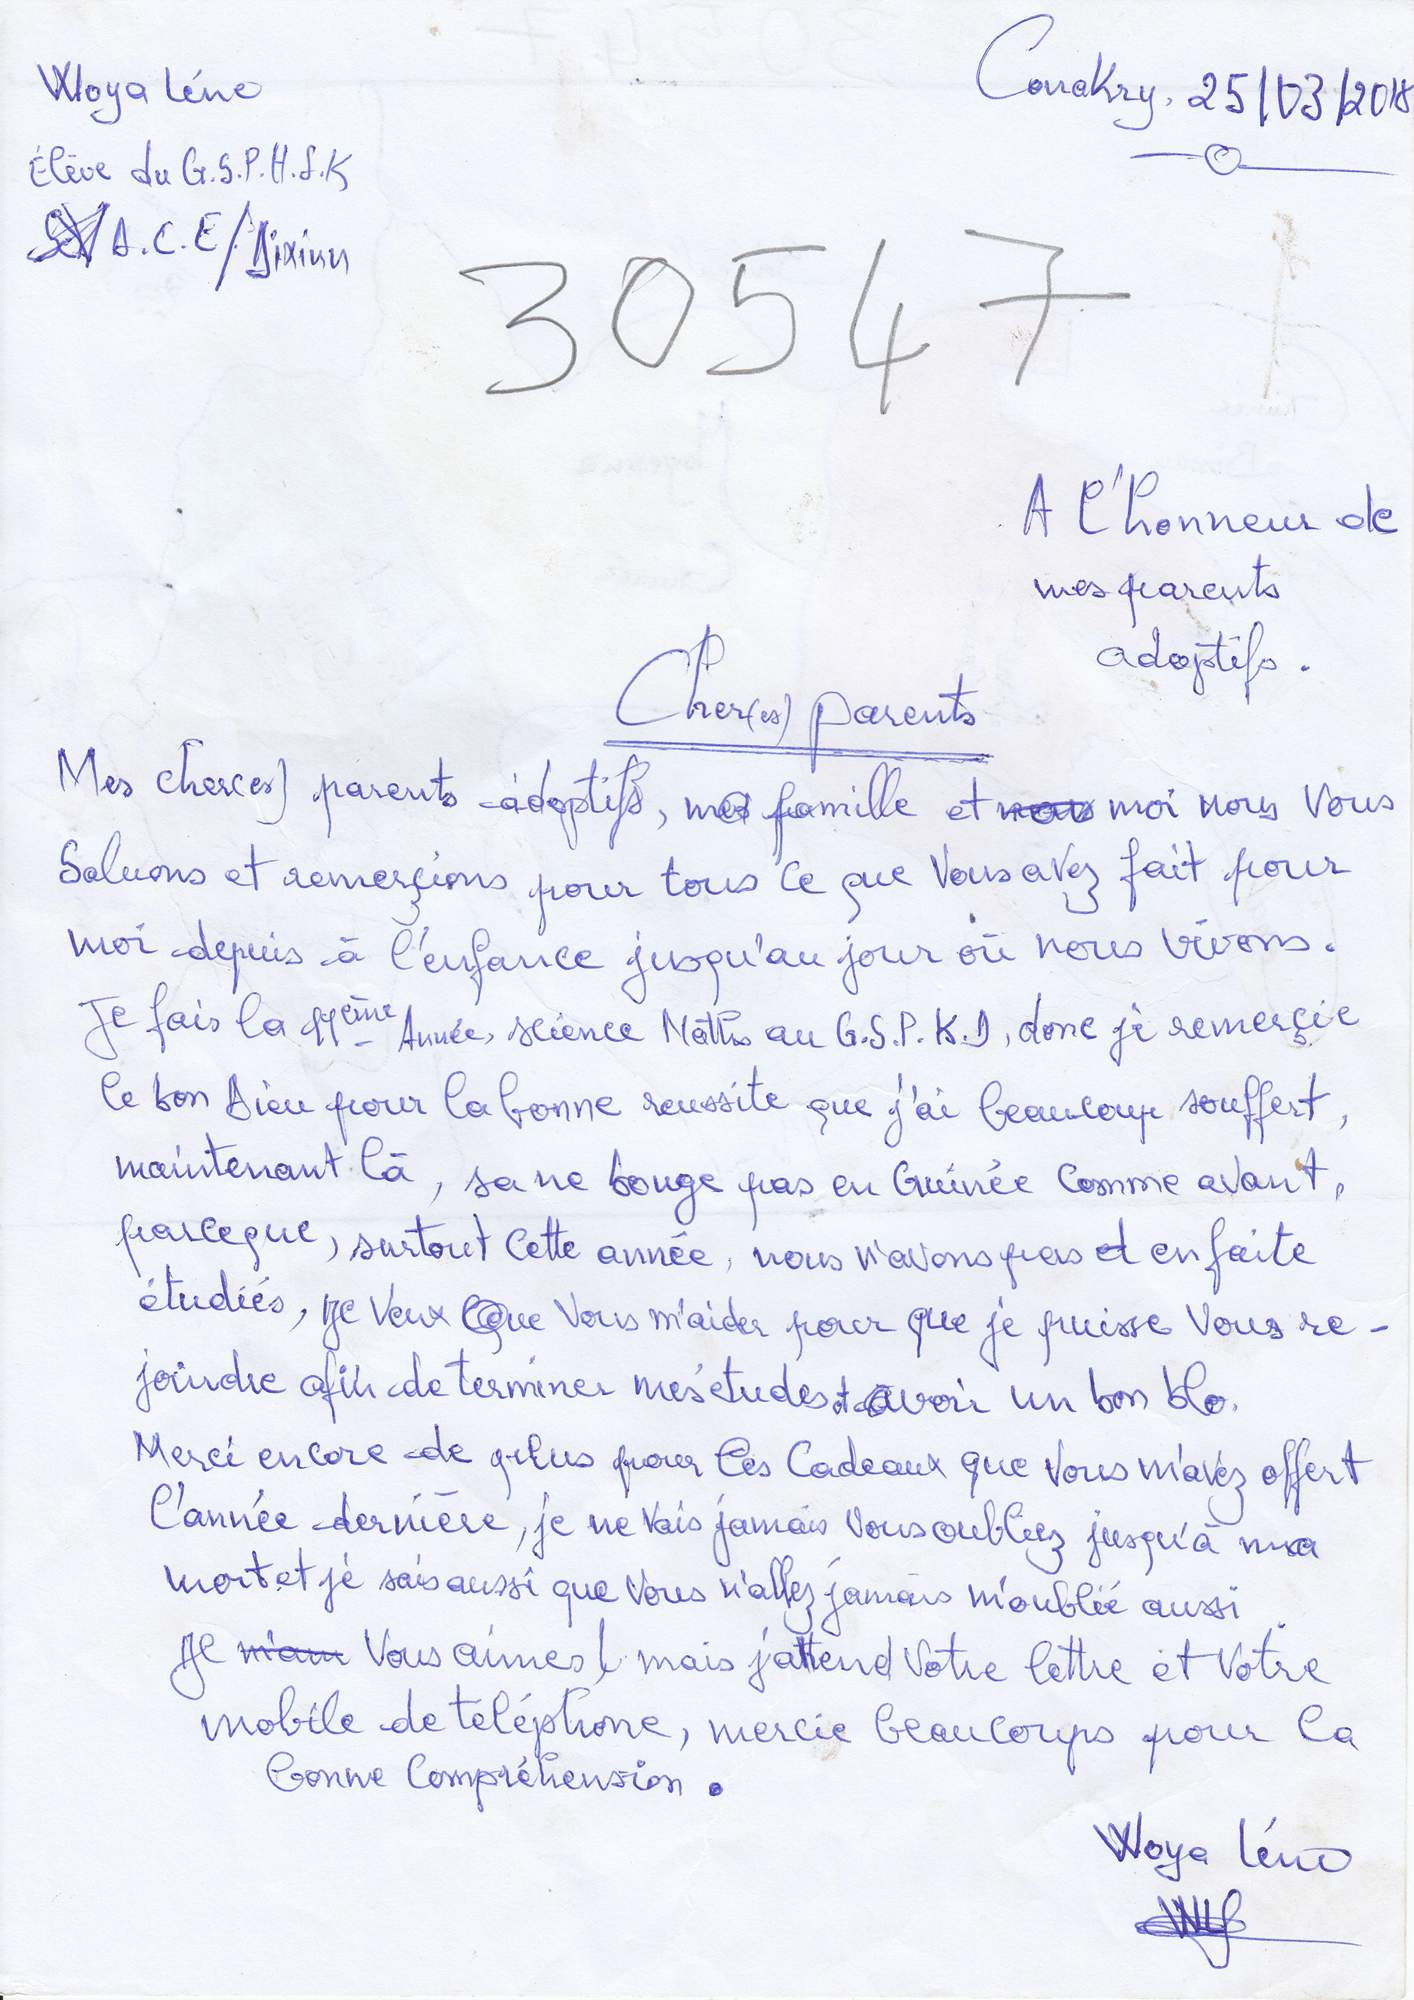 Woya Léno
Conakry, 25/03/2018
Élève du G.S.P.H.S.K
A.C.E/Dixinn
30547
A l'honneur de
mes parents
adoptifs.
Cher(es) parents
Mes cher(es) parents adoptifs, ma famille et moi nous vous
Saluons et remerçions pour tous ce que Vous avez fait pour
moi depuis à l'enfance jusqu'au jour où nous vivons.
Je fais la 11ème Année, science Maths au G.S.P.K.D, donc je remerçie
le bon Dieu pour la bonne reussite que j'ai beaucoup souffert,
maintenant là, sa ne bouge pas en Guinée comme avant,
parceque, surtout cette année, nous n'avons pas en faite
étudiés, je veux que vous m'aider pour que je puisse vous re-
joindre afin de terminer mes études et avoir un bon blo.
Merci encore de plus pour les Cadeaux que vous m'avez offert
l'année dernière, je ne vais jamais vous oubliez jusqu'à ma
mort et je sais aussi que vous n'allez jamais m'oublié aussi
Je vous aimes ! mais j'attend votre lettre et votre
mobile de téléphone, mercie beaucoups pour la
bonne compréhension.
Woya Léno